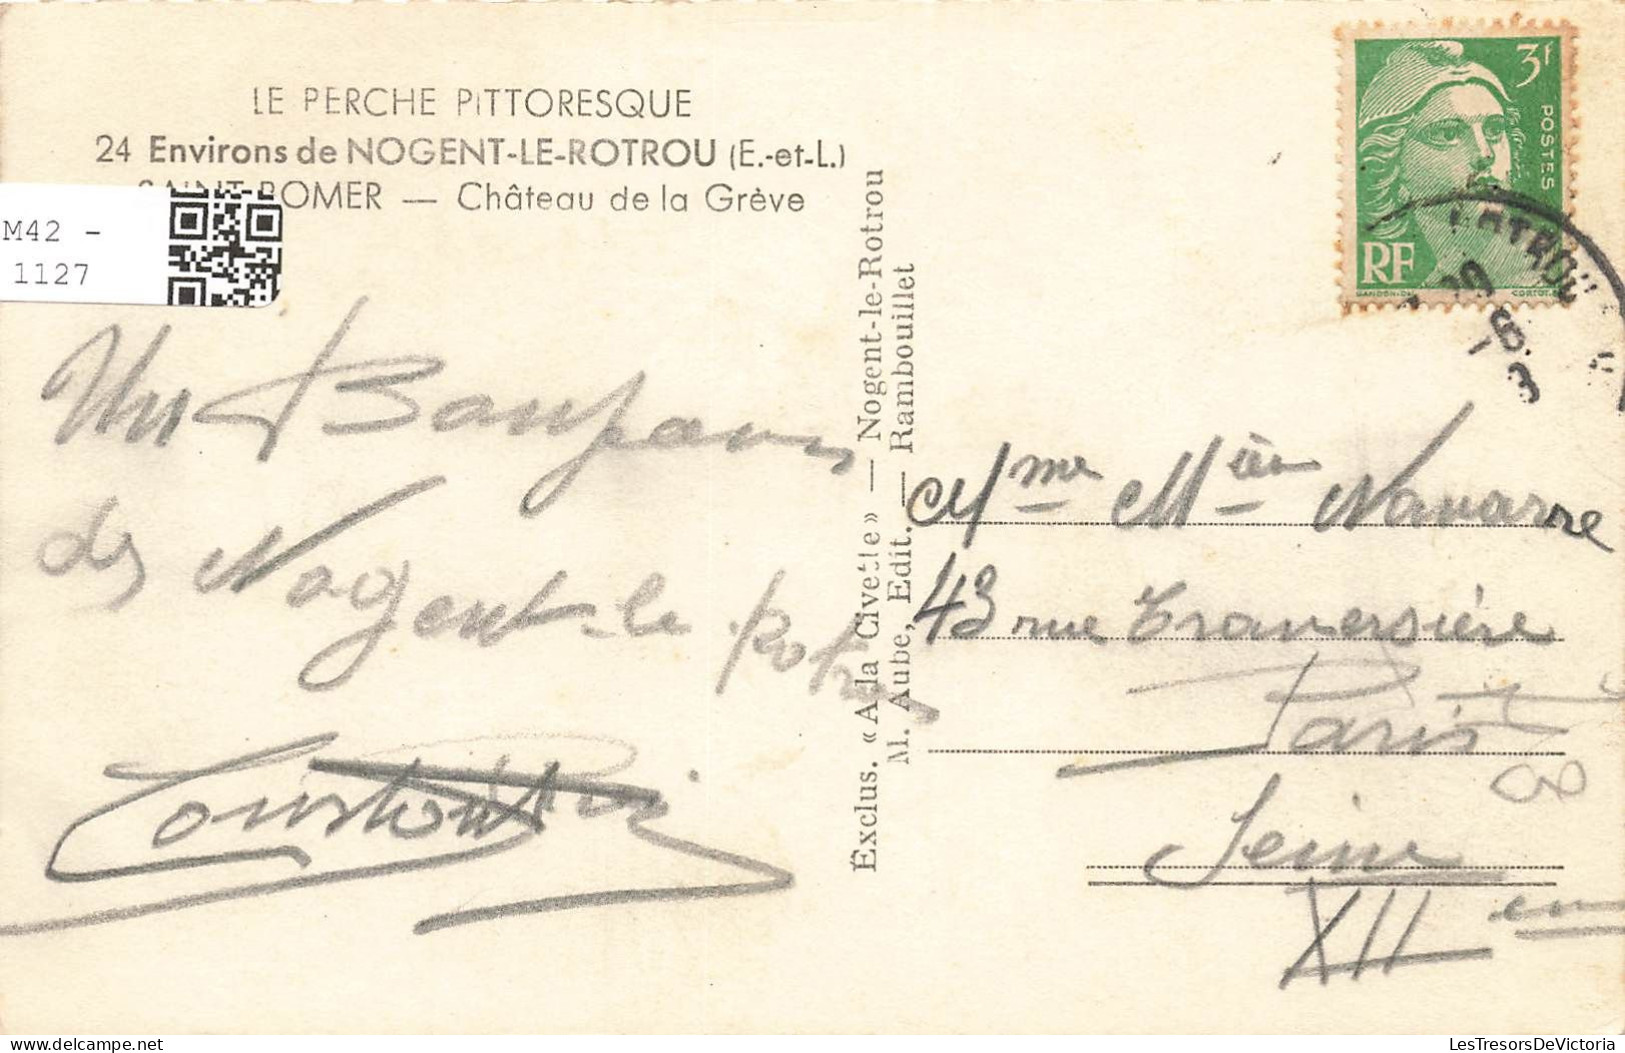 LE PERCHE PITTORESQUE
24 Environs de NOGENT-LE-ROTROU (E.-et-L.)
SAINT-BOMER — Château de la Grève
M42 -
1127
Un Bonjour
de Nogent-le Rotrou
Exclus. « A la Civette » — Nogent-le-Rotrou
M. Aube, Edit. — Rambouillet
3f
POSTES
RF
GANDON-DEL
CORTOT
ROTROU
6
3
Mme Navarre
43 rue Traversière
Paris
Seine
XII em
LesTresorsDeVictoria